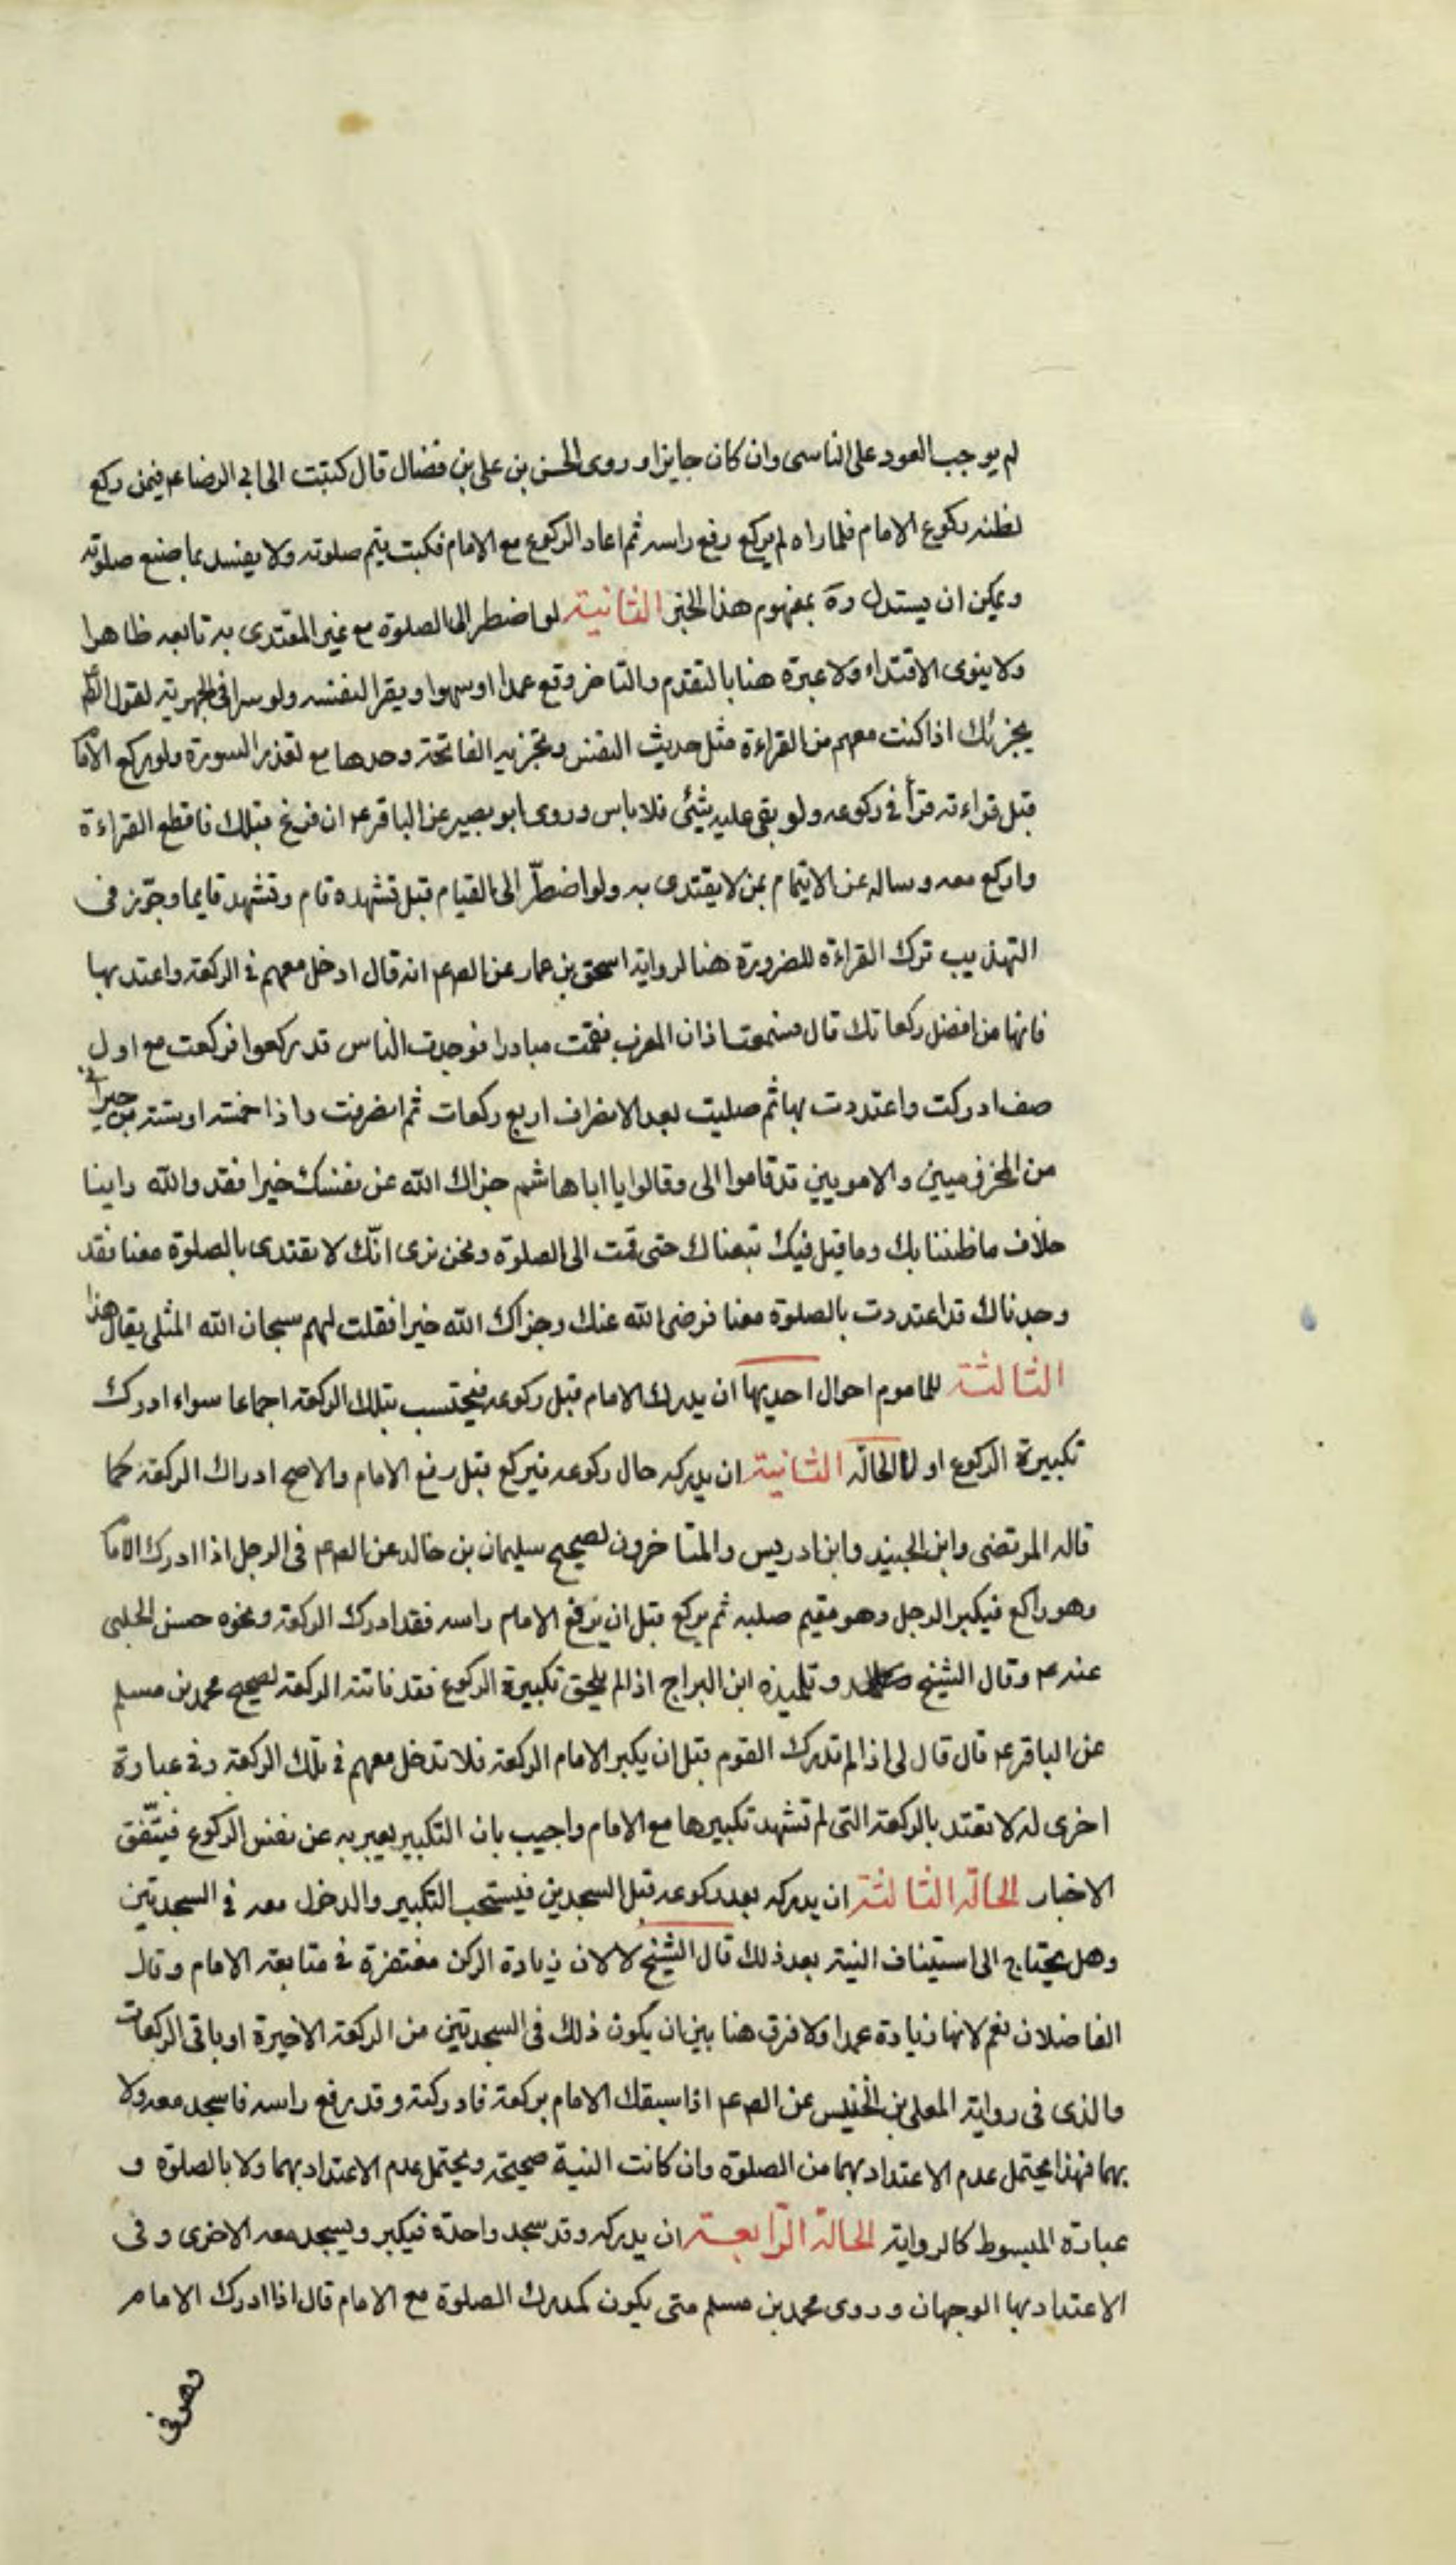 لم يوجب العود على الناسى وان كان جايزا وروى الحسن بن على بن فضال قال كتبت الى ابى الرضا عم فيمن ركع
لظنه ركوع الامام فلما راه لم يركع رفع راسه ثم اعاد الركوع مع الامام فكتب يتم صلوته ولا يفسد بما صنع صلوته
ويمكن ان يستدل ره بمفهوم هذا الخبر الثانية لو اضطر الى الصلوة مع غير المقتدى به تابعه ظاهرا
ولا ينوى الاقتداء ولا عبرة هنا بالتقدم والتاخر وقع عمدا او سهوا ويقرا لنفسه ولو سرا فى الجهرية لقول
يجزئك اذا كنت معهم من القراءة مثل حديث النفس وتجزيه الفاتحة وحدها مع تعذر السورة ولو ركع الاما
قبل قراءته قرأ فى ركوعه ولو بقى عليه شئ فلا باس وروى ابو بصير عن الباقر عم ان فرغ قبلك فاقطع القراءة
واركع معه وساله عن الايتمام بمن لا يقتدى به ولو اضطرّ الى القيام قبل تشهده قام وتشهد قايما وجوّز فى
التهذيب ترك القراءة للضرورة هنا لرواية اسحق بن عمار عن الصم عم انه قال ادخل معهم فى الركعة واعتد بها
فانها من افضل ركعاتك قال فسمعت اذان المغرب فقمت مبادرا فوجدت الناس قد ركعوا فركعت مع اول
صف ادركت واعتددت بها ثم صليت بعد الانصراف اربع ركعات ثم انصرفت واذا خمسة او ستة من جيرانى
من المخزوميين والامويين قد قاموا الى وقالوا يا ابا هاشم جزاك الله عن نفسك خيرا فقد والله راينا
خلاف ما ظننا بك وما قيل فيك تبعناك حتى قمت الى الصلوة ونحن نرى انّك لا تقتدى بالصلوة معنا فقد
وجدناك قد اعتددت بالصلوة معنا فرضى الله عنك وجزاك الله خيرا فقلت لهم سبحان الله المثلى يقال هذا
الثالثة للماموم احوال احديها ان يدرك الامام قبل ركوعه فيحتسب بتلك الركعة اجماعا سواء ادرك
تكبيرة الركوع او لا الحالة الثانية ان يدركه حال ركوعه فيركع قبل رفع الامام والاصح ادراك الركعة كما
قاله المرتضى وابن الجنيد وابن ادريس والمتاخرون لصحيح سليمان بن خالد عن الصم عم فى الرجل اذا ادرك الاما
وهو راكع فيكبر الرجل وهو مقيم صلبه ثم يركع قبل ان يرفع الامام راسه فقد ادرك الركعة ونحوه حسن الحلبى
عنه عم وقال الشيخ وتلميذه ابن البراج اذا لم يلحق تكبيرة الركوع فقد فاتته الركعة لصحيح محمد بن مسلم
عن الباقر عم قال قال لى اذا لم تدرك القوم قبل ان يكبر الامام الركعة فلا تدخل معهم فى تلك الركعة وفى عبارة
اخرى له لا تعتد بالركعة التى لم تشهد تكبيرها مع الامام واجيب بان التكبير يعبر به عن نفس الركوع فيتّفق
الاخبار الحالة الثالثة ان يدركه بعد ركوعه قبل السجدين فيستحب التكبير والدخول معه فى السجدتين
وهل يحتاج الى استيناف النية بعد ذلك قال الشيخ لا لان زيادة الركن مغتفرة فى متابعة الامام وقال
الفاضلان نعم لانها زيادة عمدا ولا فرق هنا بين ان يكون ذلك فى السجدتين من الركعة الاخيرة او باقى الركعات
والذى فى رواية المعلى بن الخنيس عن الصم عم اذا سبقك الامام بركعة فادركته وقد رفع راسه فاسجد معه ولا
بهما فهذا يحتمل عدم الاعتداد بهما من الصلوة وان كانت النية صحيحة ويحتمل عدم الاعتداد بهما ولا بالصلوة و
عبارة المبسوط كالرواية الحالة الرّابعة ان يدركه وقد سجد واحدة فيكبر ويسجد معه الاخرى وفى
الاعتداد بها الوجهان وروى محمد بن مسلم متى يكون كمدرك الصلوة مع الامام قال اذا ادرك الامام